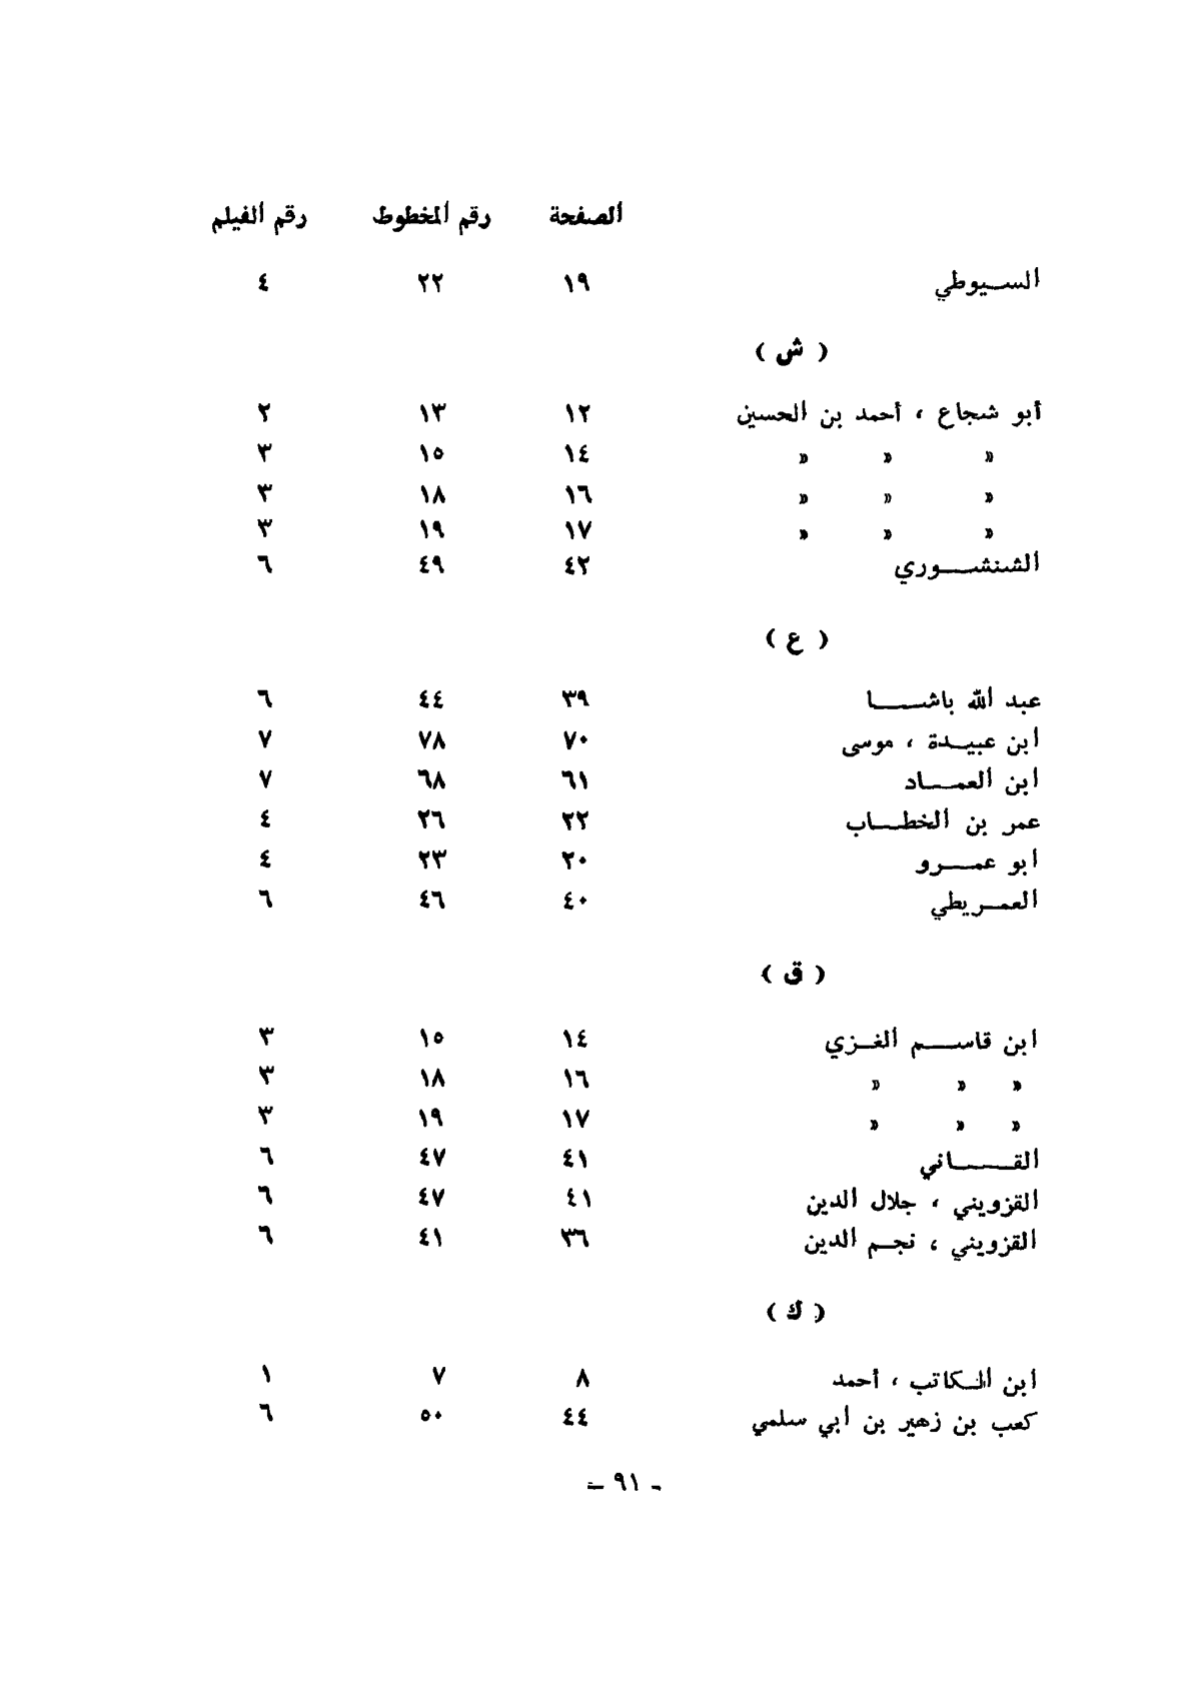 الصفحة رقم المخطوط رقم الفيلم
السيوطي ١٩ ٢٢ ٤
( ش )
أبو شجاع ، أحمد بن الحسين ١٢ ١٣ ٢
« « « ١٤ ١٥ ٣
« « « ١٦ ١٨ ٣
« « « ١٧ ١٩ ٣
الشنشوري ٤٢ ٤٩ ٦
( ع )
عبد الله باشا ٣٩ ٤٤ ٦
ابن عبيدة ، موسى ٧٠ ٧٨ ٧
ابن العماد ٦١ ٦٨ ٧
عمر بن الخطاب ٢٢ ٢٦ ٤
ابو عمرو ٢٠ ٢٣ ٤
العمريطي ٤٠ ٤٦ ٦
( ق )
ابن قاسم الغزي ١٤ ١٥ ٣
« « « ١٦ ١٨ ٣
« « « ١٧ ١٩ ٣
القاني ٤١ ٤٧ ٦
القزويني ، جلال الدين ٤١ ٤٧ ٦
القزويني ، نجم الدين ٣٦ ٤١ ٦
( ك )
ابن الكاتب ، أحمد ٨ ٧ ١
كعب بن زهير بن أبي سلمي ٤٤ ٥٠ ٦
- ٩١ -